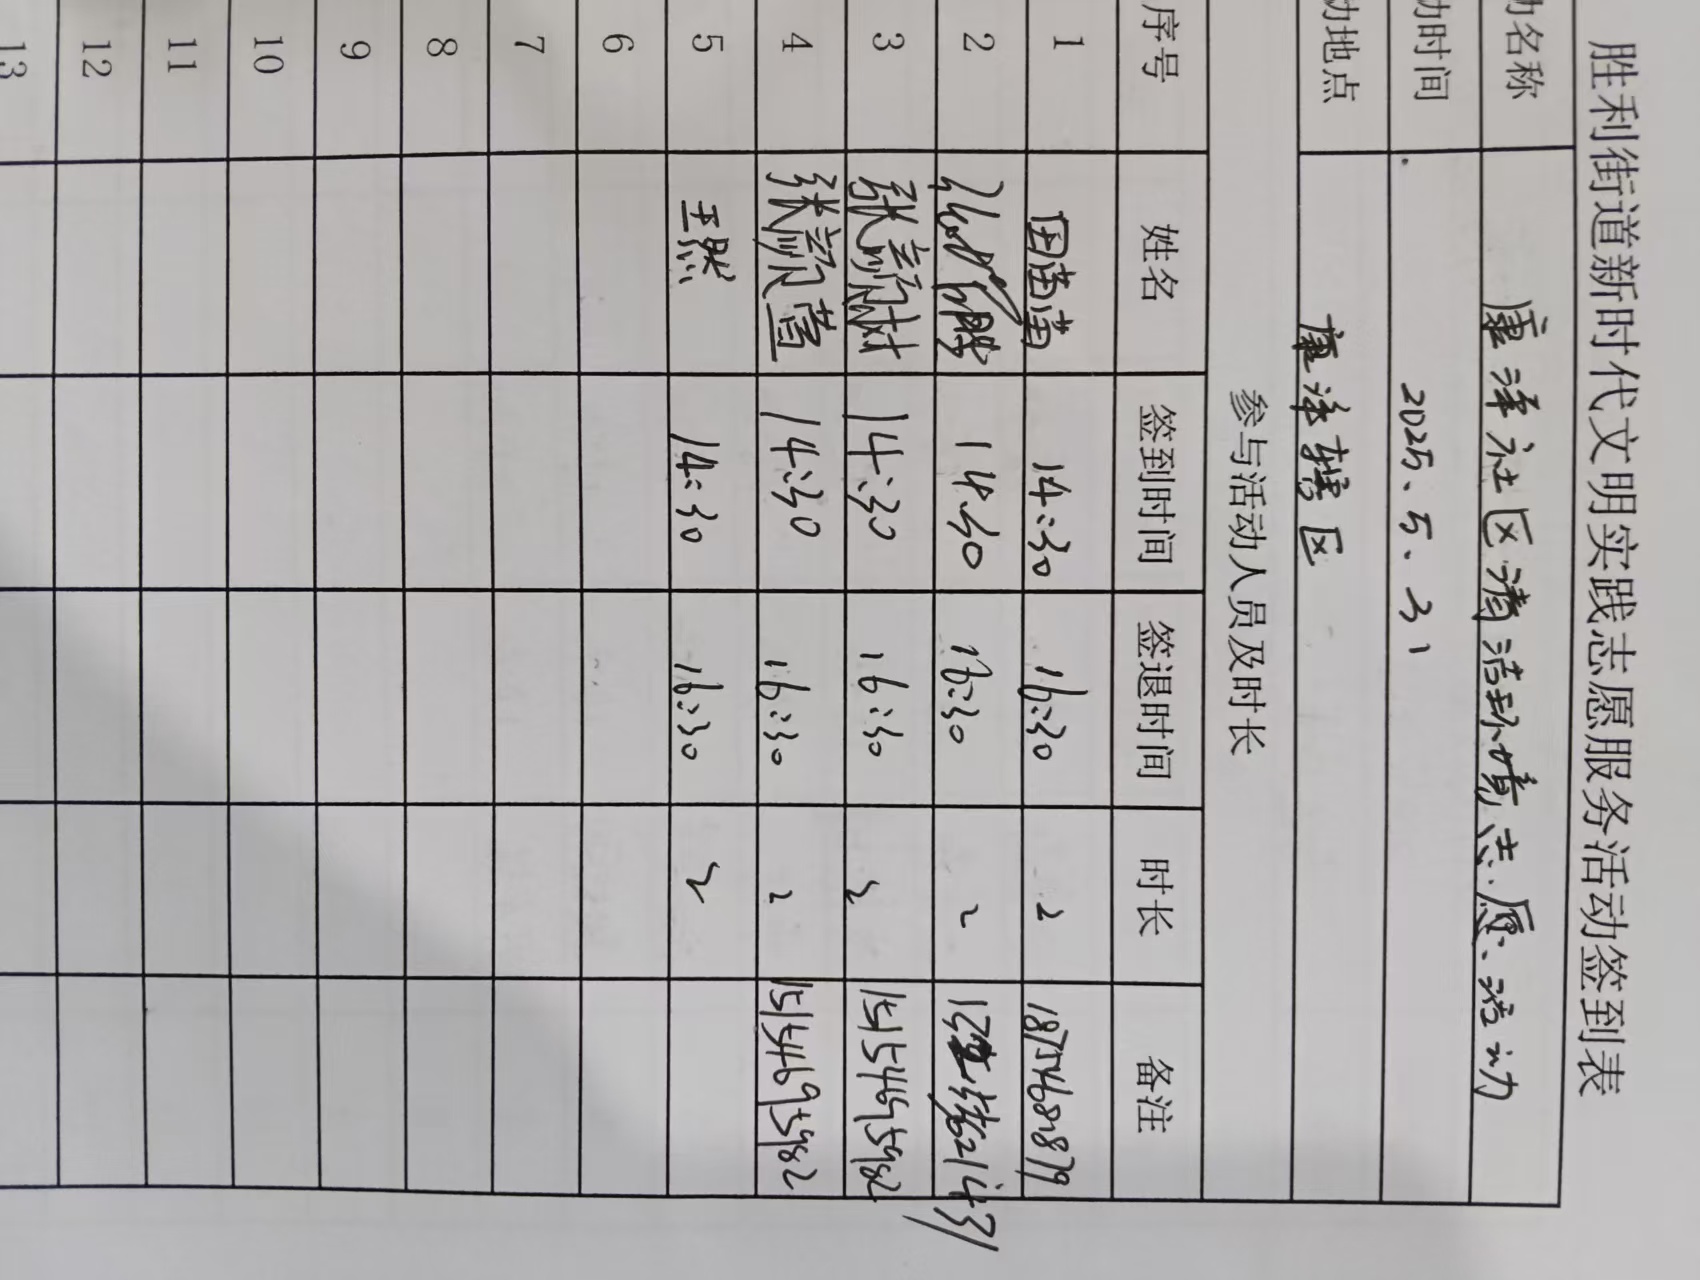 胜利街道新时代文明实践志愿服务活动签到表
动名称 康泽社区清洁环境志愿活动
动时间 2025.5.31
动地点 康泽辖区
参与活动人员及时长
序号 姓名 签到时间 签退时间 时长 备注
1 14:30 16:30 2 18754680879
2 14:30 16:30 2
3 张颜树 14:30 16:30 2 15154695982
4 张颜萱 14:30 16:30 2 15154695982
5 王然 14:30 16:30 2
6
7
8
9
10
11
12
13